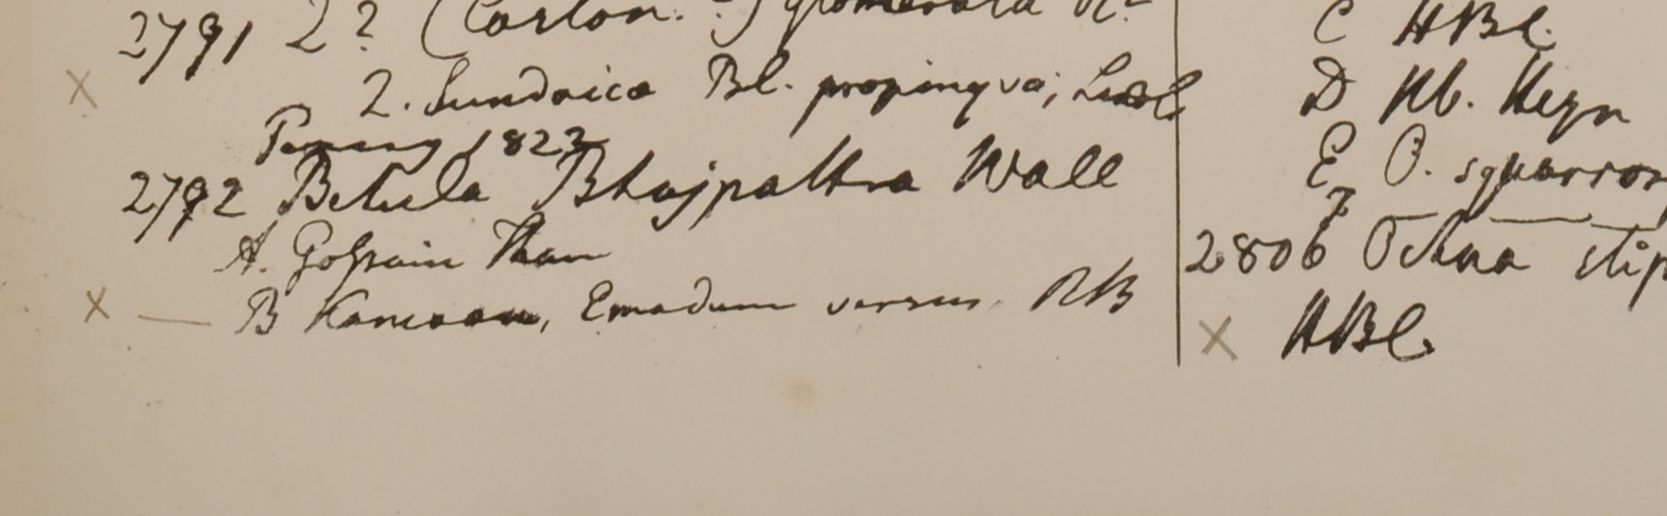 2791 Q? (Caston. ?) glomerata
Q. Sundaica Bl. propinqua;
Penang 1822
2792 Betula Bhojpattra Wall
A. Goſsain Than
B Kamaon, Emodum versus RB
C HBC.
D Hb. Heyn
E O. squarros
2806 Ochna stip
HBC.